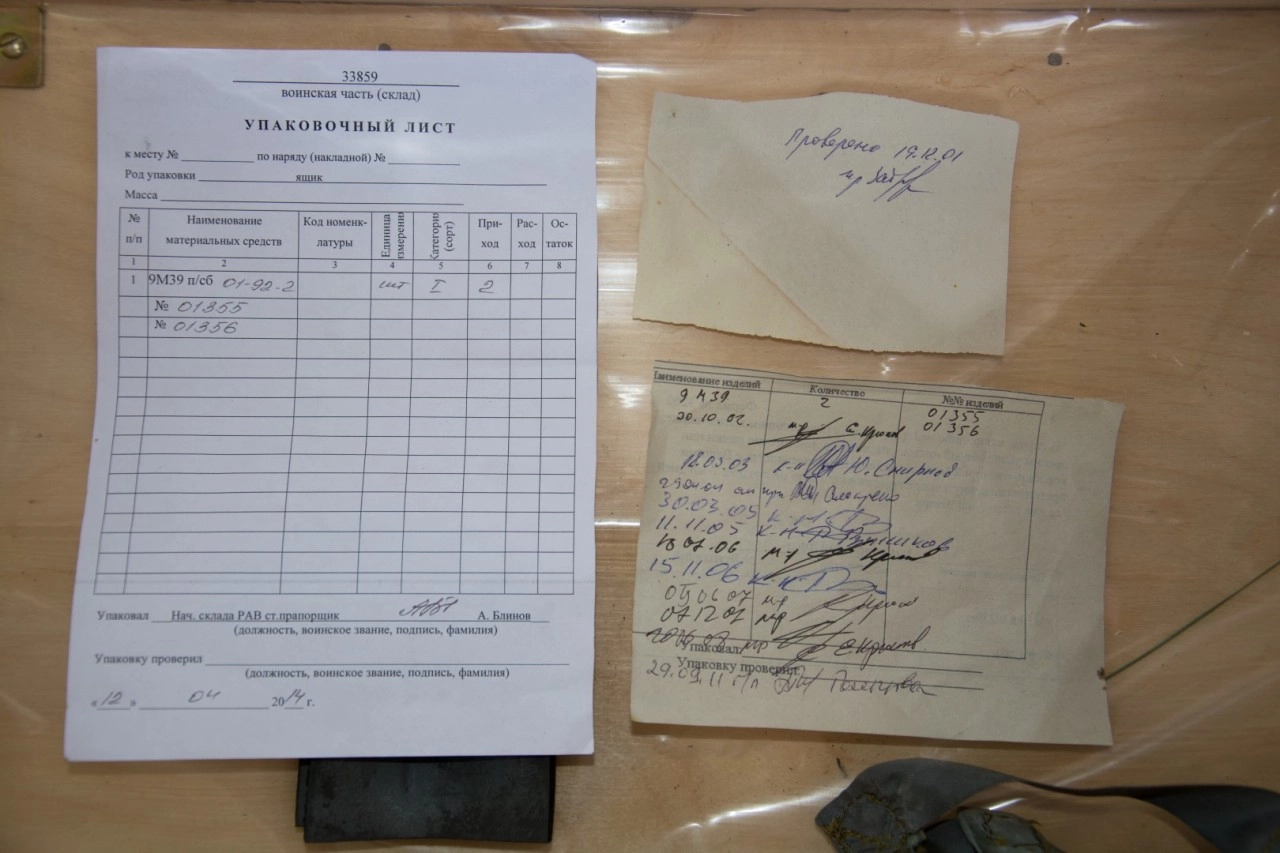 33859
воинская часть (склад)
УПАКОВОЧНЫЙ ЛИСТ
к месту № по наряду (накладной) №
Род упаковки ящик
Масса
№ п/п Наименование материальных средств Код номенк-латуры Единица измерения Категория (сорт) При-ход Рас-ход Ос-таток
1 2 3 4 5 6 7 8
1 9М39 п/сб 01-92-2 шт I 2
№ 01355
№ 01356
Упаковал Нач. склада РАВ ст.прапорщик А. Блинов
(должность, воинское звание, подпись, фамилия)
Упаковку проверил
(должность, воинское звание, подпись, фамилия)
«12» 04 2014 г.
Проверено 19.12.01
м-р
Наименование изделий Количество №№ изделий
9М39 2 01355
01356
30.10.02. м-р
18.03.03 к-н Ю. Смирнов
30.03.05 к-н
11.11.05 к-н
07.06 м-р
15.11.06 к-н
06.07 м-р
07.12.07 м-р
м-р
Упаковал
Упаковку проверил
29.09.11 п/п